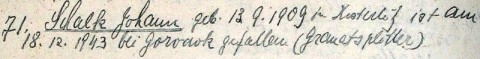 71. Schalk Johann geb. 13.9.1909 in ist am
18.12.1943 bei Gorodok gefallen (Granatsplitter)